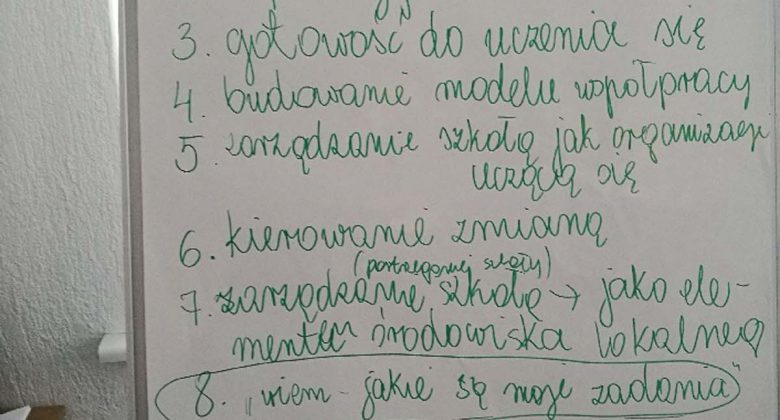 3. gotowość do uczenia się
4. budowanie modelu współpracy
5. zarządzanie szkołą jak organizacją
uczącą się
6. kierowanie zmianą
(postrzeganej szkoły)
7. zarządzanie szkołą → jako ele-
mentem środowiska lokalnego
8. „wiem - jakie są moje zadania"